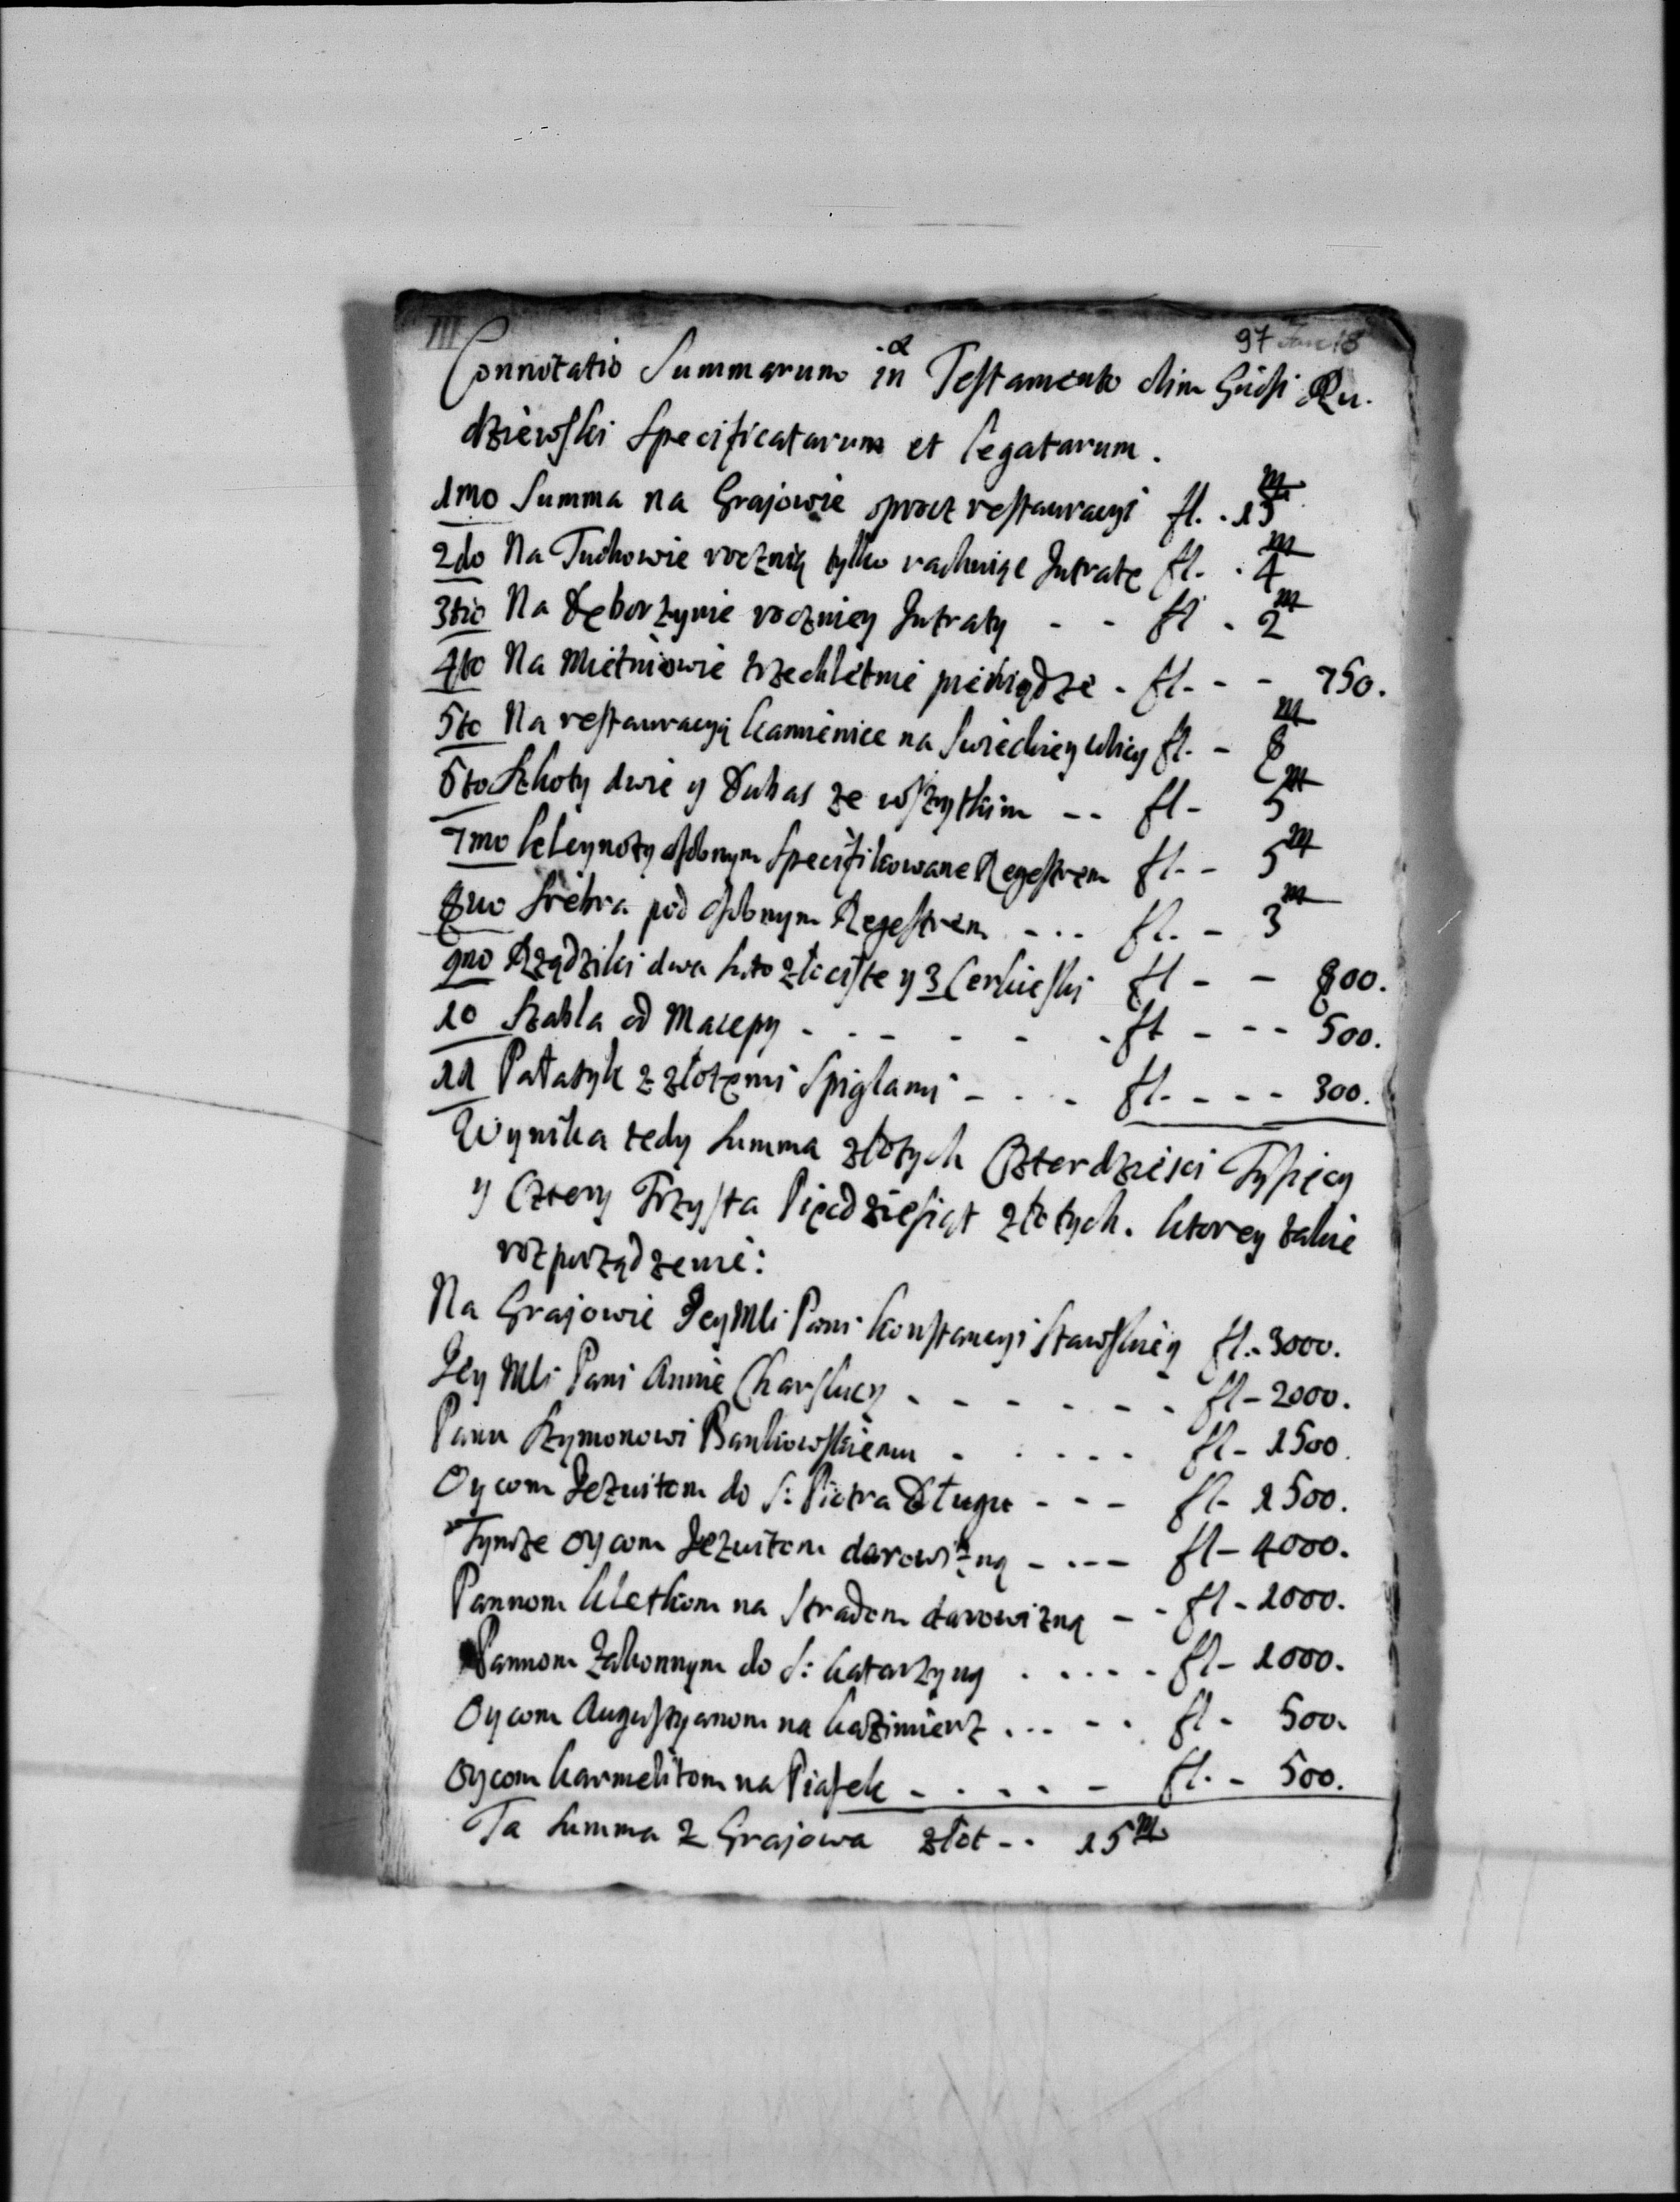 III
97
Connotatio Summarum in Testamento olim Gńdsi Ru-
dziewski Specificatarum et legatarum.
1mo Summa na Grajowie oprocz restauracyi fl. . 15m
2do Na Tuchowie roczną tylko rachuiąc Intratę fl. . 4m
3tio Na Dęborzynie roczney Intraty - - fl . 2m
4to Na Mietniowie trzechletnie pieniądze . fl. - - 750.
5to Na restauracyą kamienice na Swieckiey ulicy fl. - 8m
6to Szkoty dwie y Dubas ze wszytkim -- fl - 5m
7mo kleynoty osobnym Specifikowane Regestrem fl. - - 5m
8vo Srebra pod osobnym Regestrem - . . fl. - 3m
9no Rządziki dwa suto złociste y 3 Cerkieski fl - - 800.
10 Szabla od Macepy . . - - - . fl - - - 500.
11 Pałasyk z złotemi Spiglami - . . - fl. - - - 300.
Wynika tedy Summa złotych Czterdziesci Tysięcy
y Cztery Trzysta Pięcdziesiąt złotych. ktorey takie
rozporządzenie:
Na Grajowie JeyMści Pani konstancyi Stawskiey fl. - 3000.
Jey Mści Pani Annie Charskiey . - - - - - . fl - 2000.
Panu Szymonowi Bankowskiemu . . - - - fl - 1500.
Oycom Jezuitom do S: Piotra Długu - - - fl - 1500.
Tymże oycom Jezuitom darowizną - . - - fl - 4000.
Pannom kletkom na Stradom darowizną - - fl - 1000.
Pannom Zakonnym do S: katarzyny . . . - . fl - 1000.
Oycom Augustyanom na kazimierz . . . - . fl - 500.
Oycom karmelitom na Piasek - . . . - - fl. - 500.
Ta Summa z Grajowa złot - . 15m